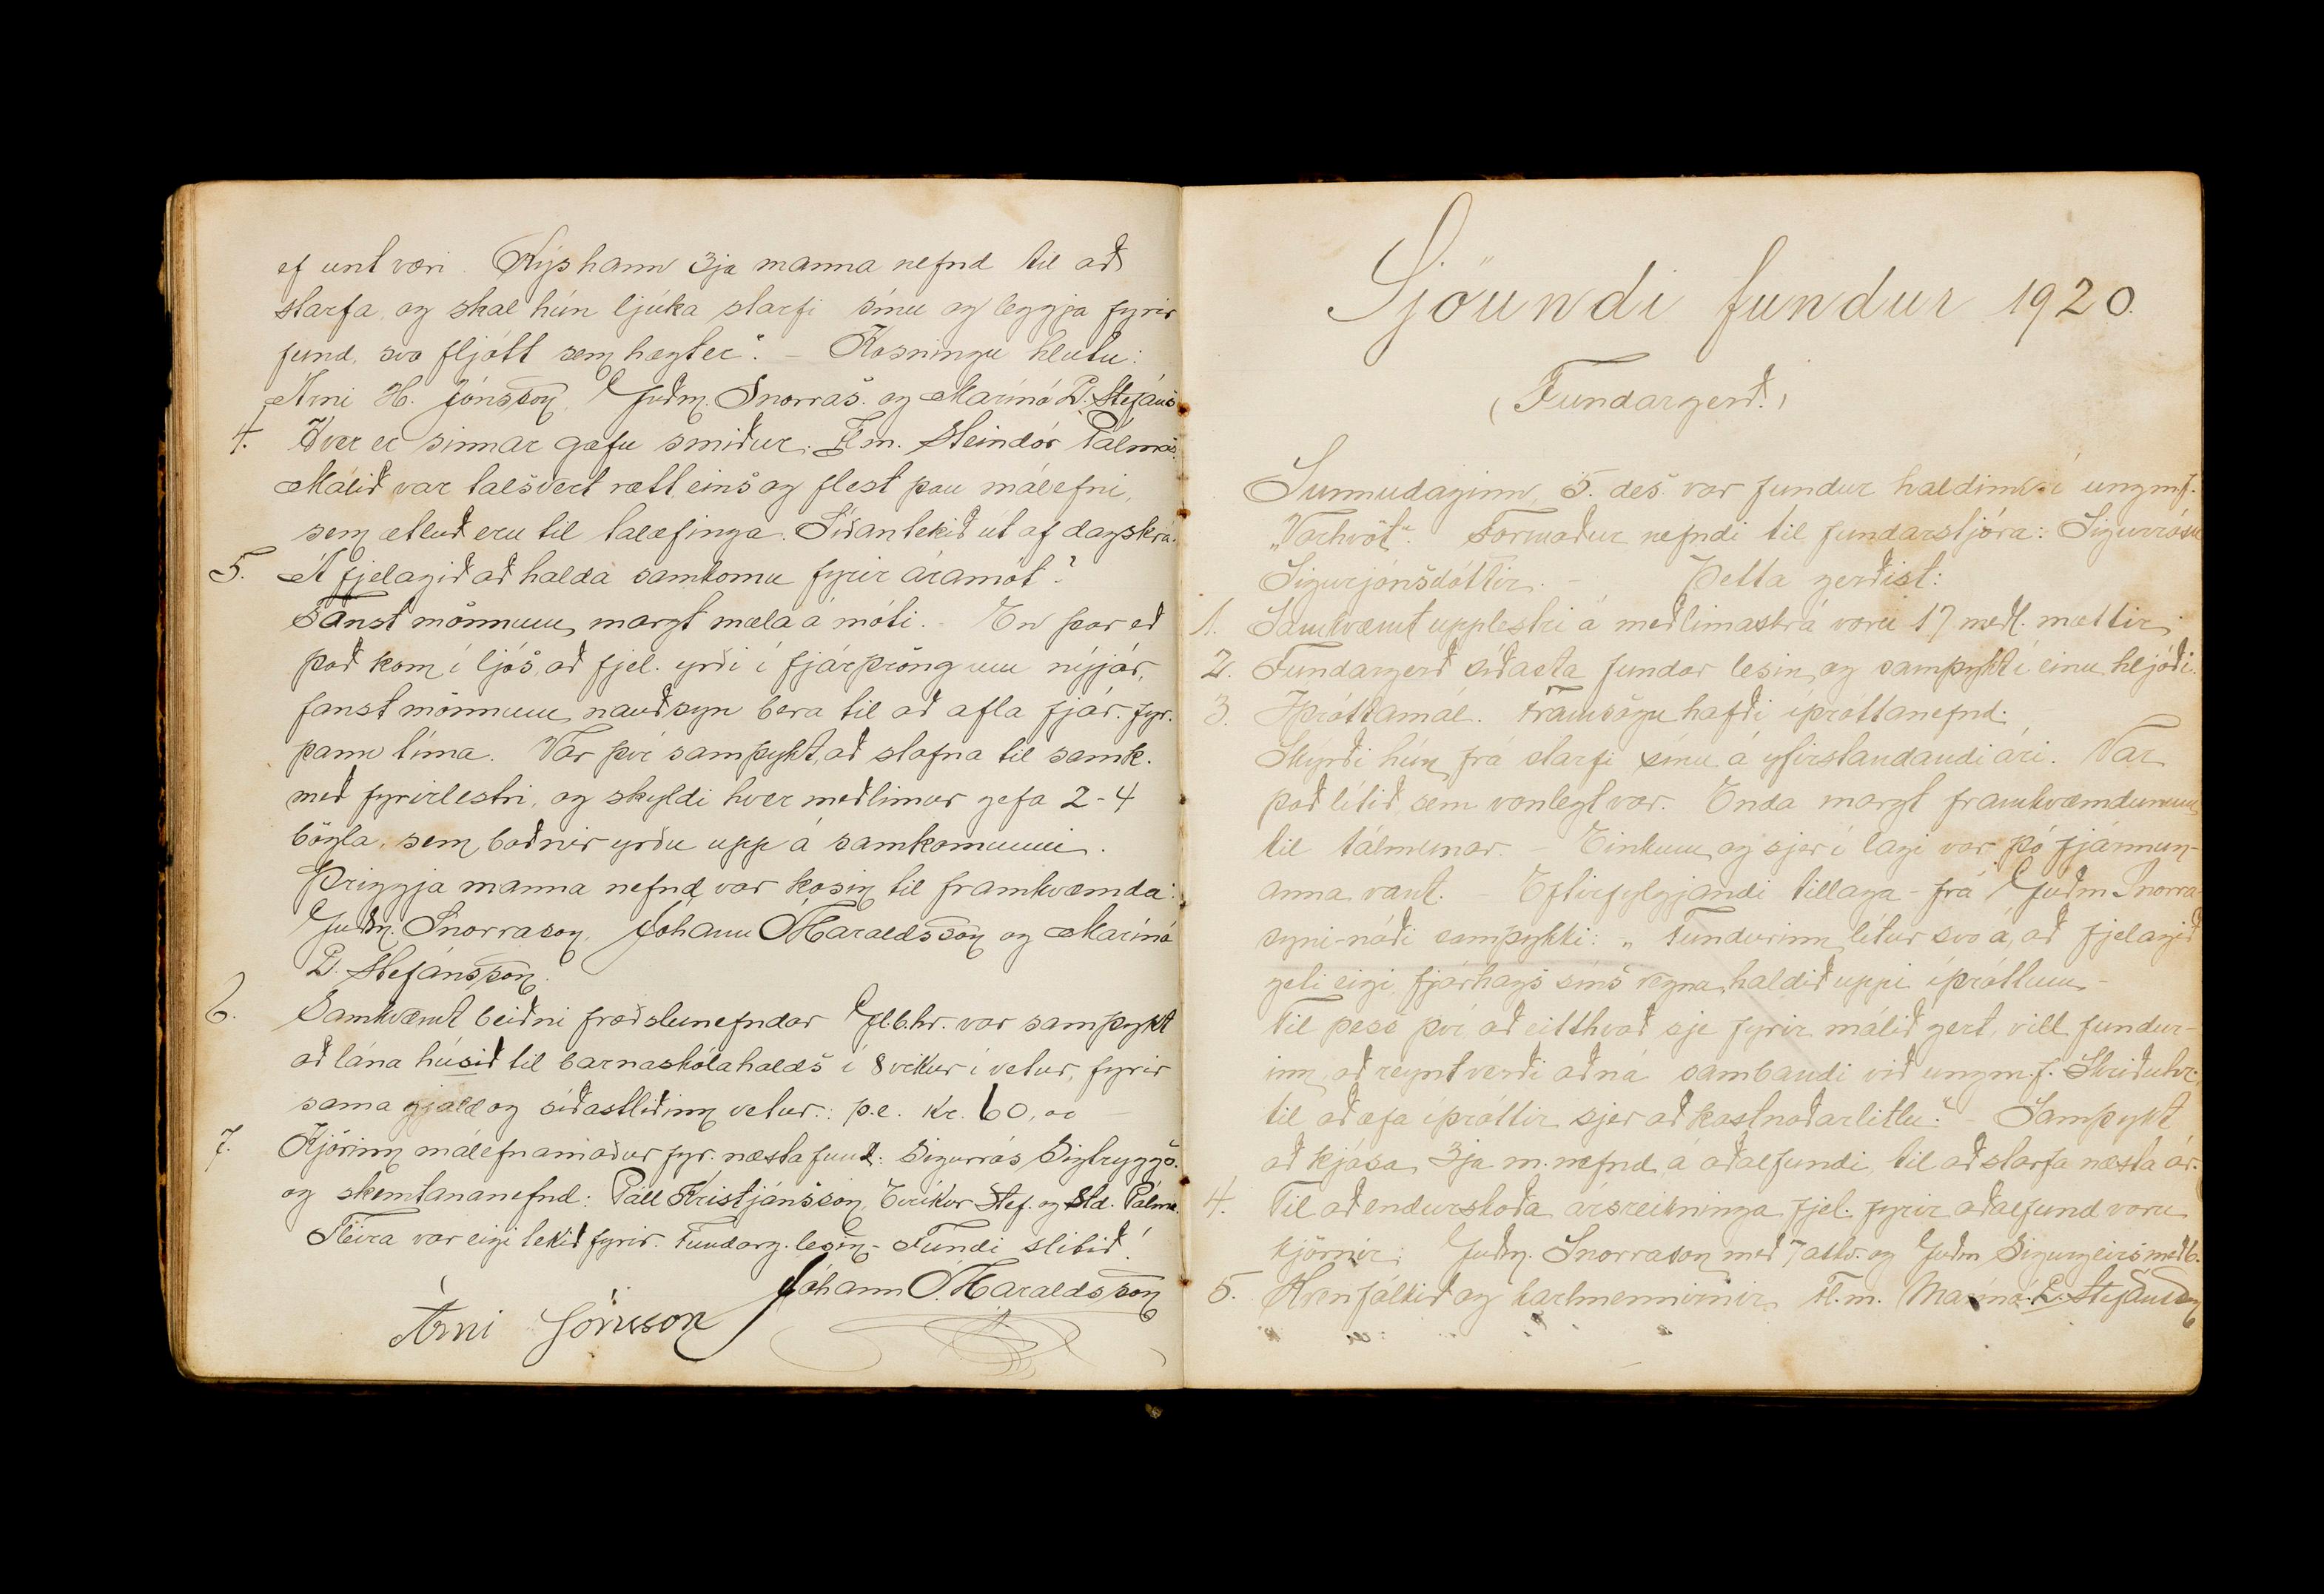 ef unt væri. Kýs hann 3ja manna nefnd til að
starfa, og skal hún ljúka starfi sínu og leggja fyrir
fund, svo fljótt sem hægt er". – Kosningu hlutu:
Árni H. Jónsson, Guðm. Snorras. og Marinó L. Stefáns.
4. Hver er sinnar gæfu smiður. Fl.m. Steindór Pálmas.
Málið var talsvert rætt eins og flest þau málefni,
sem ætluð eru til talæfinga. Síðan tekið út af dagskrá.
5. Á fjelagið að halda samkomu fyrir áramót?
Fanst mönnum margt mæla á móti. – En þar eð
það kom í ljós, að fjel. yrði í fjárþröng um nýjár,
fanst mönnum nauðsyn bera til að afla fjár. fyr.
þann tíma. Var því samþykt, að stofna til samk.
með fyrirlestri, og skyldi hver meðlimur gefa 2-4
bögla, sem boðnir yrðu upp á samkomunni.
Þriggja manna nefnd var kosin til framkvæmda:
Guðm. Snorrason, Jóhann Ó. Haraldsson og Marinó
L. Stefánsson.
6. Samkvæmt beiðni fræðslunefndar Glbhr. var samþykt
að lána húsið til barnaskólahalds í 8 vikur í vetur, fyrir
sama gjald og síðastliðinn vetur.: þ.e. kr. 60,oo
7. Kjörinn málefnamaður fyr. næsta fund: Sigurrós Sigtryggs.
og skemtananefnd: Páll Kristjánsson, Eiríkur Stef. og Std. Pálma.
Fleira var eigi tekið fyrir. Fundarg. lesin – Fundi slitið!
Jóhann Ó. Haraldsson
Árni Jónsson
Sjöundi fundur 1920.
(Fundargerð.)
Sunnudaginn 5. des. var fundur haldinn í ungmf.
„Vorhvöt". Formaður nefndi til fundarstjóra: Sigurrósu
Sigurjónsdóttir. – Þetta gerðist:
1. Samkvæmt upplestri á meðlimaskrá voru 17 meðl. mættir.
2. Fundargerð síðasta fundar lesin og samþykt í einu hljóði.
3. Íþróttamál. Framsögu hafði íþróttanefnd.
Skýrði hún frá starfi sínu á yfirstandandi ári. Var
það lítið sem vonlegt var. Enda margt framkvæmdunum
til tálmunar. – Einkum og sjer í lagi var þó fjármun-
anna vant. – Eftirfylgjandi tillaga – frá Guðm Snorra-
syni – náði samþykki: „Fundurinn lítur svo á, að fjelagið
geti eigi fjárhags síns vegna haldið uppi íþróttum –
Til þess því að eitthvað sje fyrir málið gert, vill fundur-
inn að reynt verði að ná sambandi við ungm.f. Skriðuhr.
til að æfa íþróttir sjer að kostnaðarlitlu." – Samþykt
að kjósa 3ja m. nefnd á aðalfundi, til að starfa næsta ár.
4. Til að endurskoða ársreikninga fjel. fyrir aðalfund voru
kjörnir: Guðm. Snorrason með 7 atkv. og Guðm Sigurgeirs með 6.
5. Kvenfólkið og karlmennirnir. Fl.m. Marinó L. Stefánsson